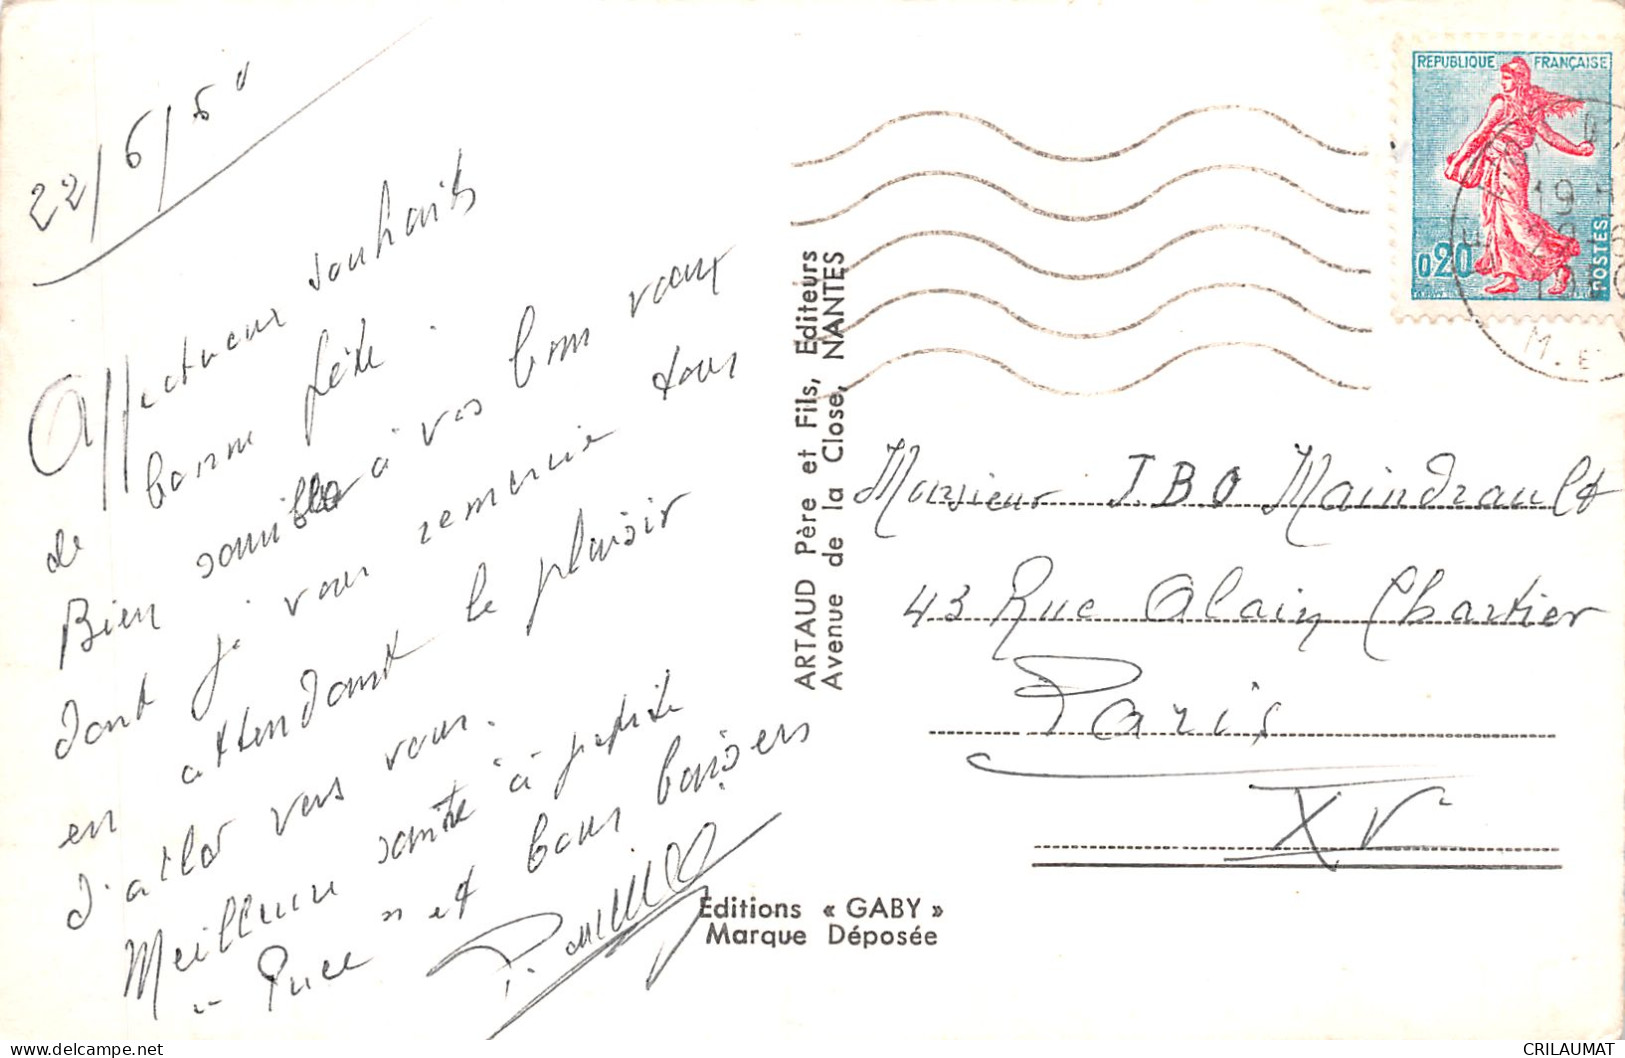 22/6/60
Affectueux souhaits
de bonne fête.
Bien sensible à vos bons vœux
dont je vous remercie tous
en attendant le plaisir
d'aller vers vous.
Meilleure santé à petite
"Puce" et bons baisers
ARTAUD Père et Fils, Editeurs
Avenue de la Close, NANTES
Editions « GABY »
Marque Déposée
REPUBLIQUE FRANÇAISE
0,20
POSTES
19 H
22-6
1960
M. ET
Monsieur J.B.O Maindrault
43 Rue Alain Chartier
Paris
XV
CRILAUMAT